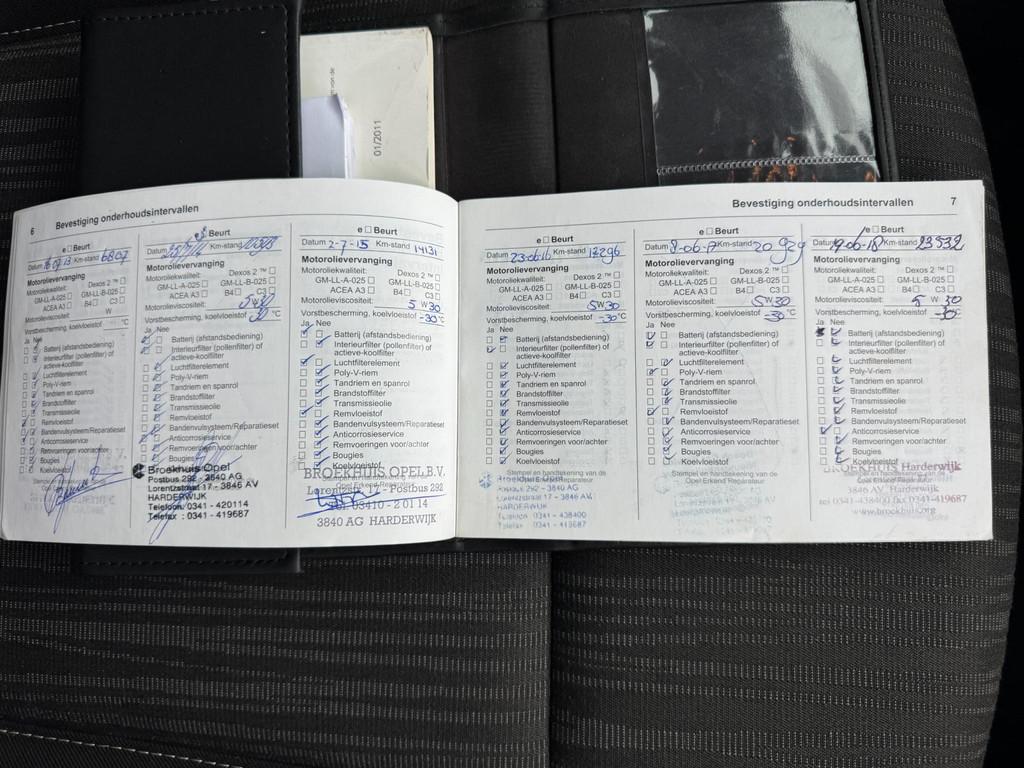 01/2011
6 Bevestiging onderhoudsintervallen
e Beurt
Datum 16 07 13 Km-stand 6807
Motorolievervanging
Motoroliekwaliteit:
Dexos 2 ™
GM-LL-A-025 GM-LL-B-025
ACEA A3 B4 C3
Motorolieviscositeit: W
Vorstbescherming, koelvloeistof °C
Ja Nee
Batterij (afstandsbediening)
Interieurfilter (pollenfilter) of
actieve-koolfilter
Luchtfilterelement
Poly-V-riem
Tandriem en spanrol
Brandstoffilter
Transmissieolie
Remvloeistof
Bandenvulsysteem/Reparatieset
Anticorrosieservice
Remvoeringen voor/achter
Bougies
Koelvloeistof
e Beurt
Datum Km-stand
Motorolievervanging
Motoroliekwaliteit:
Dexos 2 ™
GM-LL-A-025 GM-LL-B-025
ACEA A3 B4 C3
Motorolieviscositeit: 5W30
Vorstbescherming, koelvloeistof 30 °C
Ja Nee
Batterij (afstandsbediening)
Interieurfilter (pollenfilter) of
actieve-koolfilter
Luchtfilterelement
Poly-V-riem
Tandriem en spanrol
Brandstoffilter
Transmissieolie
Remvloeistof
Bandenvulsysteem/Reparatieset
Anticorrosieservice
Remvoeringen voor/achter
Bougies
Broekhuis Opel
Postbus 292 - 3840 AG
Lorentzstraat 17 - 3846 AV
HARDERWIJK
Telefoon: 0341 - 420114
Telefax : 0341 - 419687
e Beurt
Datum 2-7-15 Km-stand 14131
Motorolievervanging
Motoroliekwaliteit:
Dexos 2 ™
GM-LL-A-025 GM-LL-B-025
ACEA A3 B4 C3
Motorolieviscositeit: 5 W 30
Vorstbescherming, koelvloeistof -30 °C
Ja Nee
Batterij (afstandsbediening)
Interieurfilter (pollenfilter) of
actieve-koolfilter
Luchtfilterelement
Poly-V-riem
Tandriem en spanrol
Brandstoffilter
Transmissieolie
Remvloeistof
Bandenvulsysteem/Reparatieset
Anticorrosieservice
Remvoeringen voor/achter
Bougies
Koelvloeistof
BROEKHUIS OPEL B.V.
Lorentzstr. 17 - Postbus 292
Tel. 03410 - 2 01 14
3840 AG HARDERWIJK
Bevestiging onderhoudsintervallen 7
e Beurt
Datum 23-06-16 Km-stand 17296
Motorolievervanging
Motoroliekwaliteit:
Dexos 2 ™
GM-LL-A-025 GM-LL-B-025
ACEA A3 B4 C3
Motorolieviscositeit: 5W30
Vorstbescherming, koelvloeistof -30 °C
Ja Nee
Batterij (afstandsbediening)
Interieurfilter (pollenfilter) of
actieve-koolfilter
Luchtfilterelement
Poly-V-riem
Tandriem en spanrol
Brandstoffilter
Transmissieolie
Remvloeistof
Bandenvulsysteem/Reparatieset
Anticorrosieservice
Remvoeringen voor/achter
Bougies
Koelvloeistof
Stempel en handtekening van de
Opel Erkend Reparateur
Postbus 292 - 3840 AG
Lorentzstraat 17 - 3846 AV
HARDERWIJK
Telefoon : 0341 - 438400
Telefax : 0341 - 419687
e Beurt
Datum 8-06-17 Km-stand 20 929
Motorolievervanging
Motoroliekwaliteit:
Dexos 2 ™
GM-LL-A-025 GM-LL-B-025
ACEA A3 B4 C3
Motorolieviscositeit: 5W30
Vorstbescherming, koelvloeistof -30 °C
Ja Nee
Batterij (afstandsbediening)
Interieurfilter (pollenfilter) of
actieve-koolfilter
Luchtfilterelement
Poly-V-riem
Tandriem en spanrol
Brandstoffilter
Transmissieolie
Remvloeistof
Bandenvulsysteem/Reparatieset
Anticorrosieservice
Remvoeringen voor/achter
Bougies
Koelvloeistof
Stempel en handtekening van de
Opel Erkend Reparateur
e Beurt
Datum 19-06-18 Km-stand 23532
Motorolievervanging
Motoroliekwaliteit:
Dexos 2 ™
GM-LL-A-025 GM-LL-B-025
ACEA A3 B4 C3
Motorolieviscositeit: 5 W 30
Vorstbescherming, koelvloeistof -30 °C
Ja Nee
Batterij (afstandsbediening)
Interieurfilter (pollenfilter) of
actieve-koolfilter
Luchtfilterelement
Poly-V-riem
Tandriem en spanrol
Brandstoffilter
Transmissieolie
Remvloeistof
Bandenvulsysteem/Reparatieset
Anticorrosieservice
Remvoeringen voor/achter
Bougies
Koelvloeistof
BROEKHUIS Harderwijk
3846 AV Harderwijk
tel 0341-438400 fax 0341-419687
www.broekhuis.org